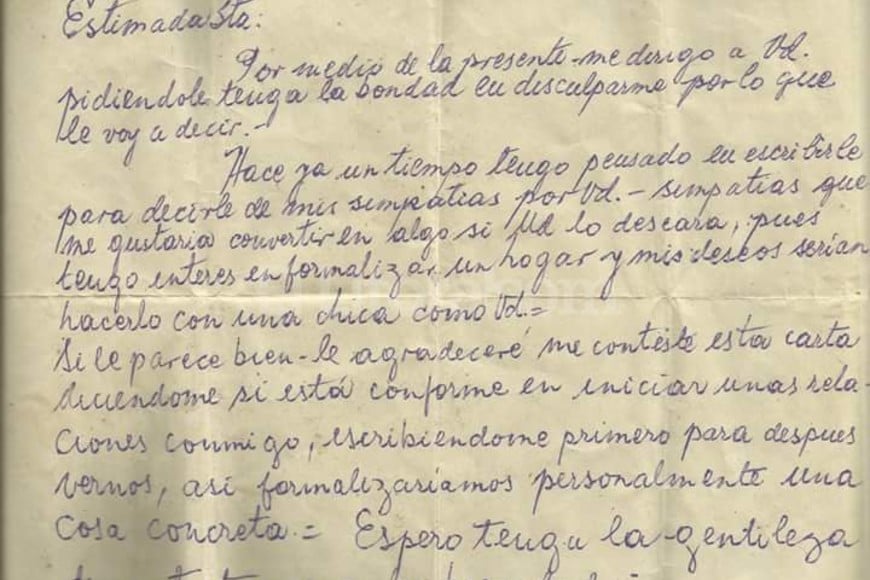 Estimada Sta:
Por medio de la presente-me dirigo a Vd.
pidiendole tenga la bondad en disculparme por lo que
le voy a decir.-
Hace ya un tiempo tengo pensado en escribirle
para decirle de mis simpatias por Vd.- simpatias que
me gustaria convertir en algo si Ud lo deseara, pues
tengo interes en formalizar un hogar y mis deseos serian
hacerlo con una chica como Vd.=
Si le parece bien-le agradeceré me conteste esta carta
diciendome si está conforme en iniciar unas rela-
ciones conmigo, escribiendome primero para despues
vernos, asi formalizariamos personalmente una
cosa concreta.= Espero tenga la gentileza